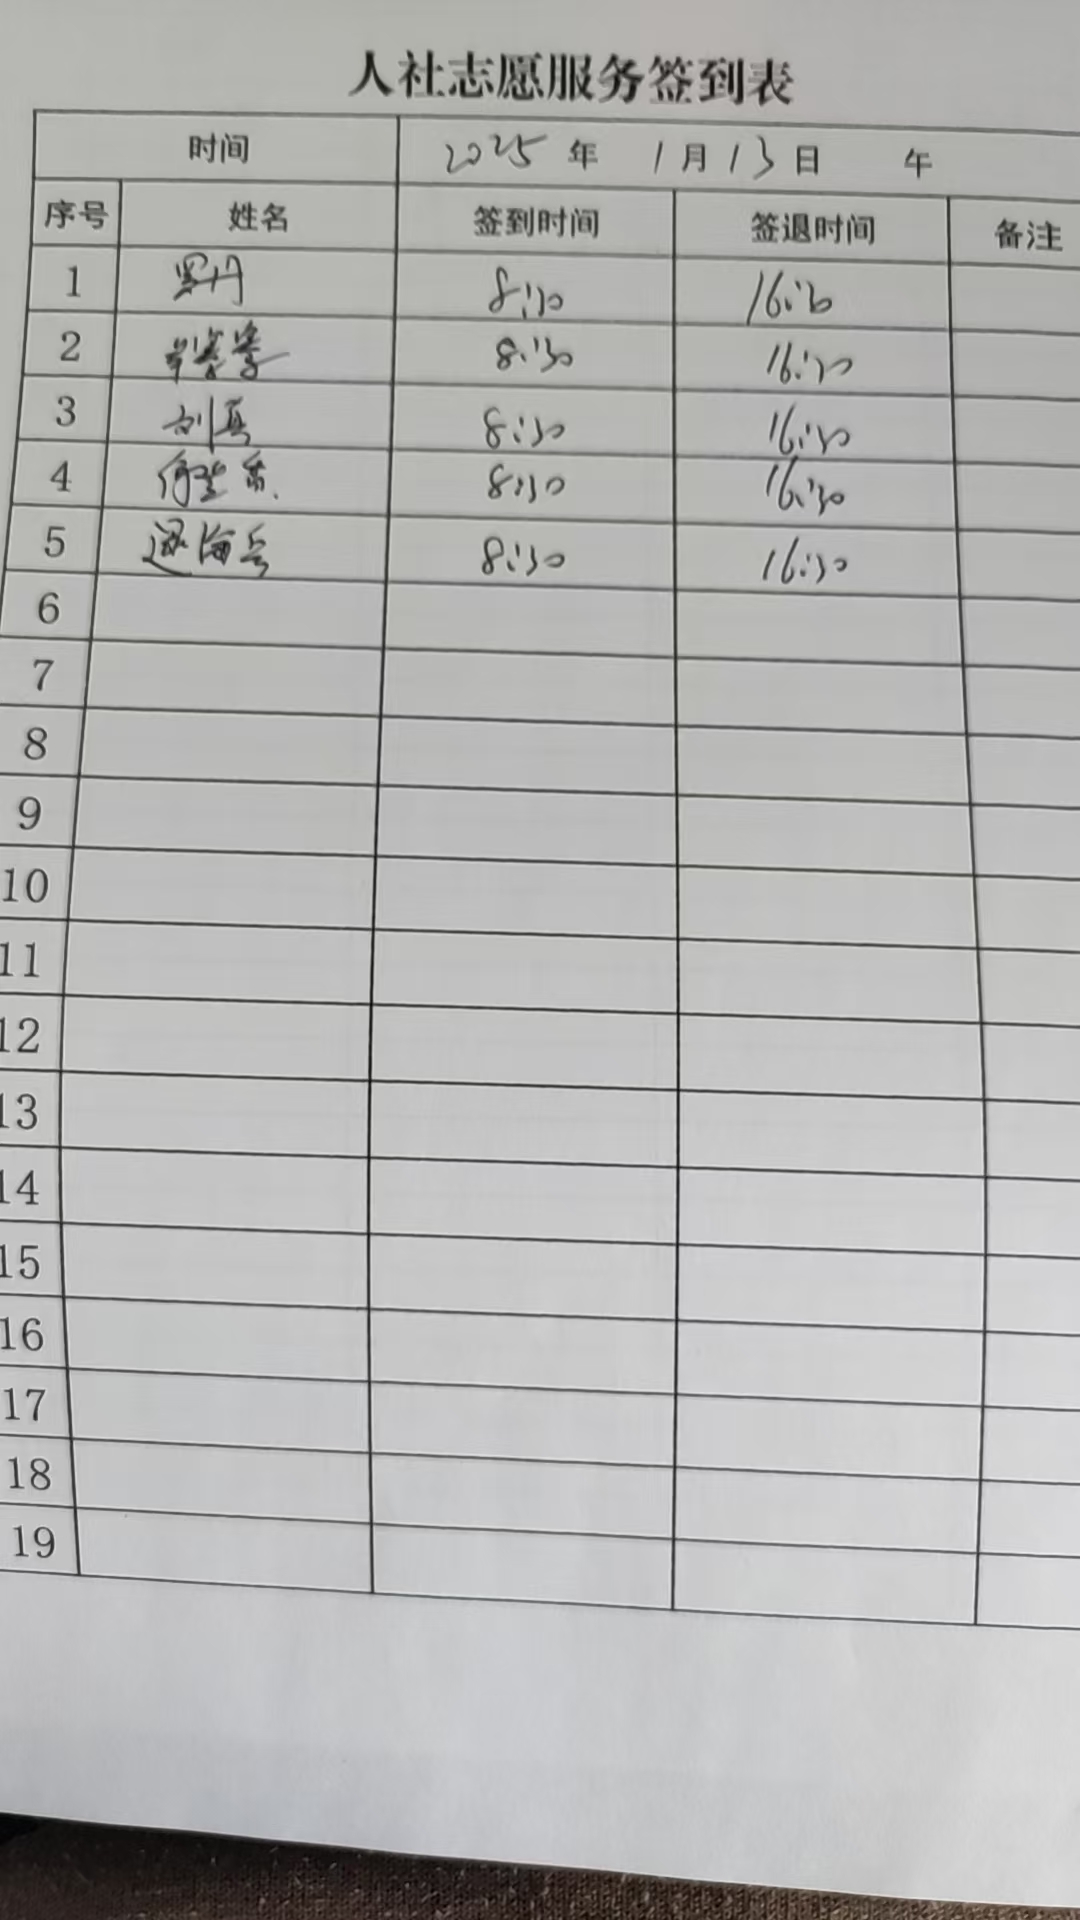 人社志愿服务签到表
时间 2025 年 1 月 13 日 午
序号 姓名 签到时间 签退时间 备注
1 罗丹 8:30 16:30
2 8:30 16:30
3 刘真 8:30 16:30
4 8:30 16:30
5 8:30 16:30
6
7
8
9
10
11
12
13
14
15
16
17
18
19